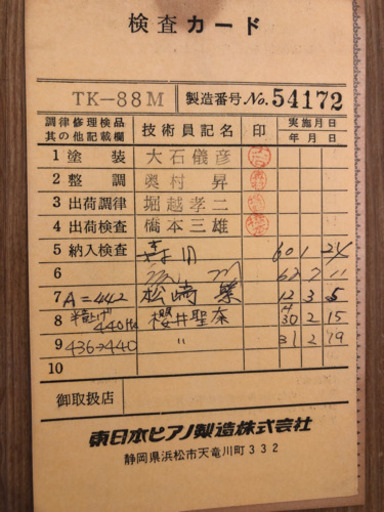 検査カード
TK-88M 製造番号 No. 54172
調律修理検品 其の他記載欄 技術員記名 印 実施月日 年月日
1 塗装 大石儀彦
2 整調 奥村 昇
3 出荷調律 堀越孝二
4 出荷検査 橋本三雄
5 納入検査 60 1 24
6 62 2 11
7 A=442 松崎 12 3 5
8 440Hz 櫻井聖奈 30 2 15
9 436→440 〃 31 2 19
10
御取扱店
東日本ピアノ製造株式会社
静岡県浜松市天竜川町332